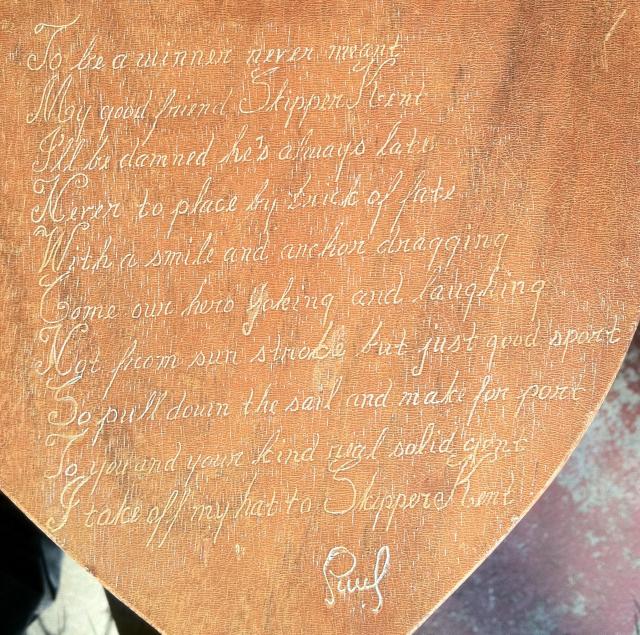 To be a winner never meant
My good friend Skipper Kent
I'll be damned he's always late
Never to place by trick of fate
With a smile and anchor dragging
Come our hero Joking and laughing
Not from sun stroke but just good sport
So pull down the sail and make for port
To you and your kind real solid gent
I take off my hat to Skipper Kent
Paul